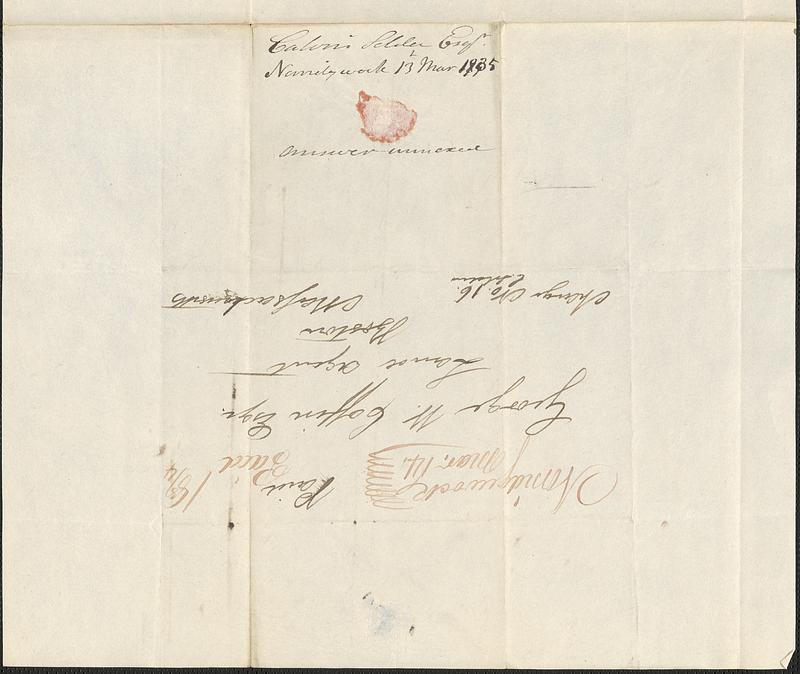 Calvin Selden Esqr.
Norridgewock 13 Mar 1835
answer annexed
Norridgewock
Mar. 14.
Paid
Paid 18 3/4
George W. Coffin Esqr.
Land agent
Boston
Massachusetts
Charge No 16